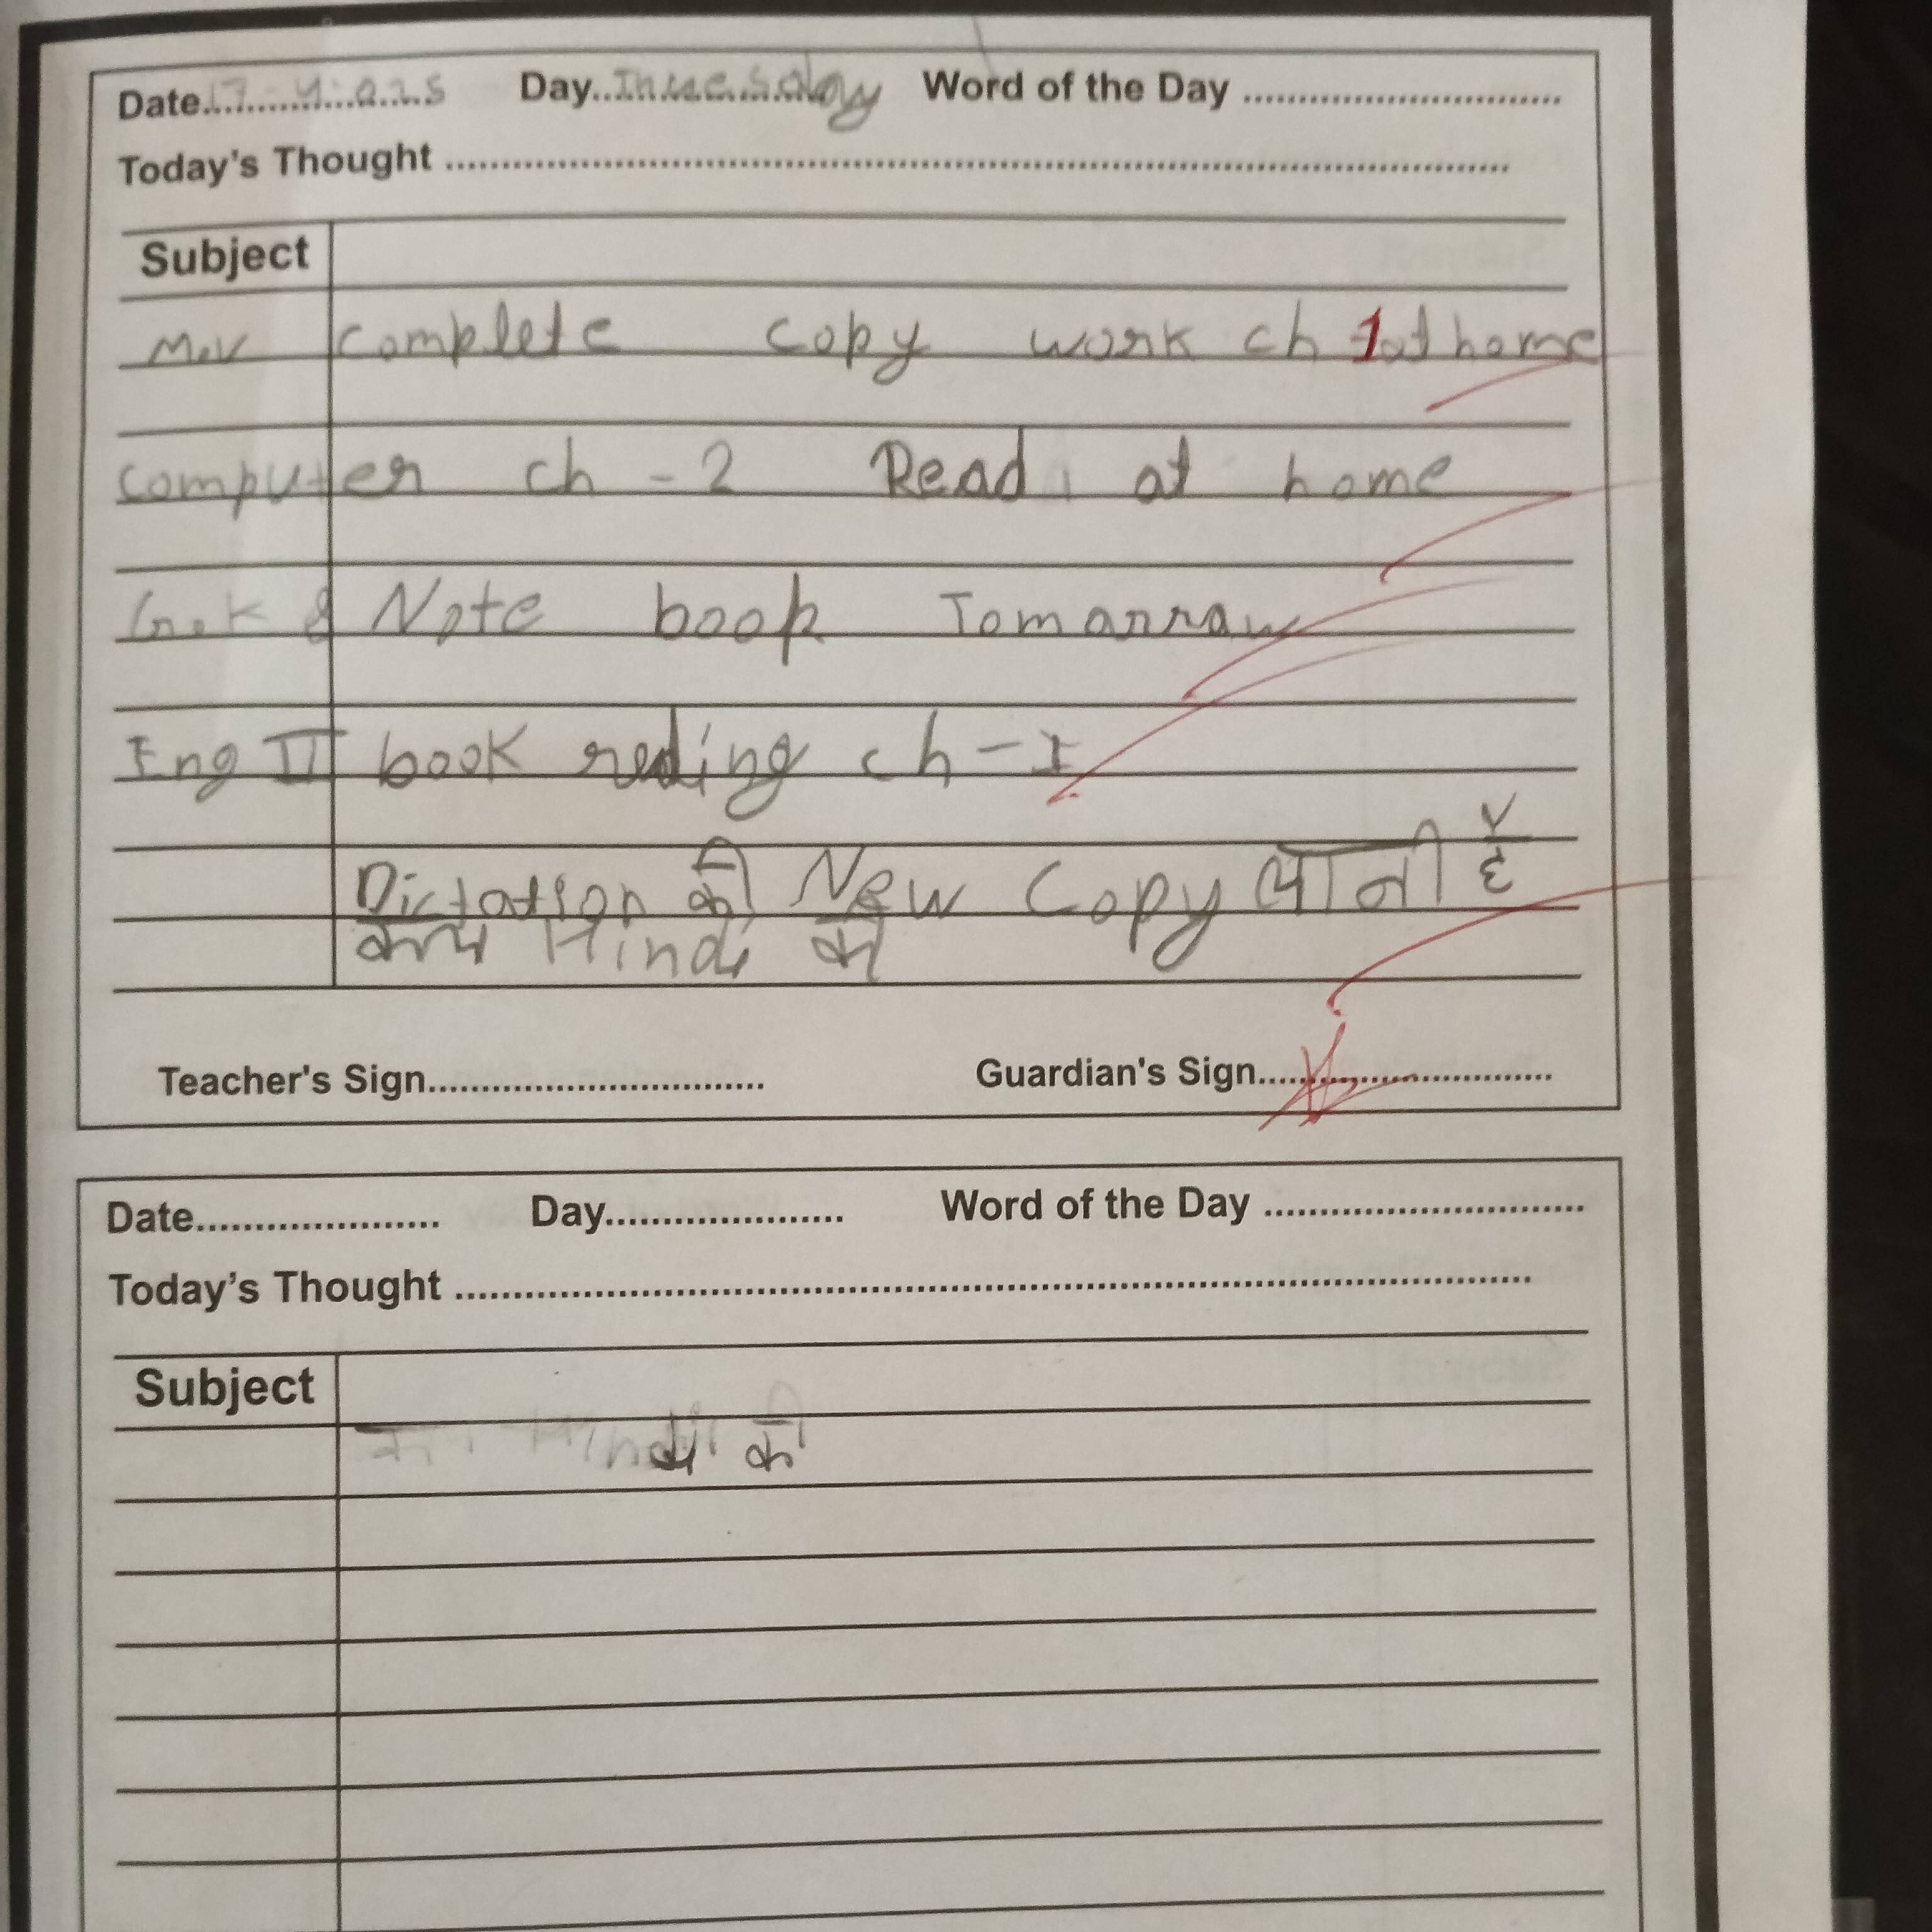 Date 17-4-2025 Day Thuesday Word of the Day
Today's Thought
Subject
M.V Complete copy work ch 1 at home
Computer ch - 2 Read at home
& Note book Tomarraw
Eng II book reding ch - I
Dictation की New Copy लानी है
कल Hindi की
Teacher's Sign Guardian's Sign
Date Day Word of the Day
Today's Thought
Subject
Hindi की